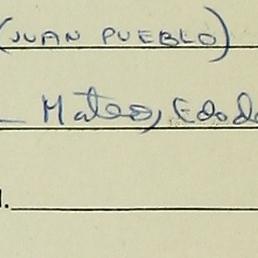 (JUAN PUEBLO)
Mateo, Edo d
.